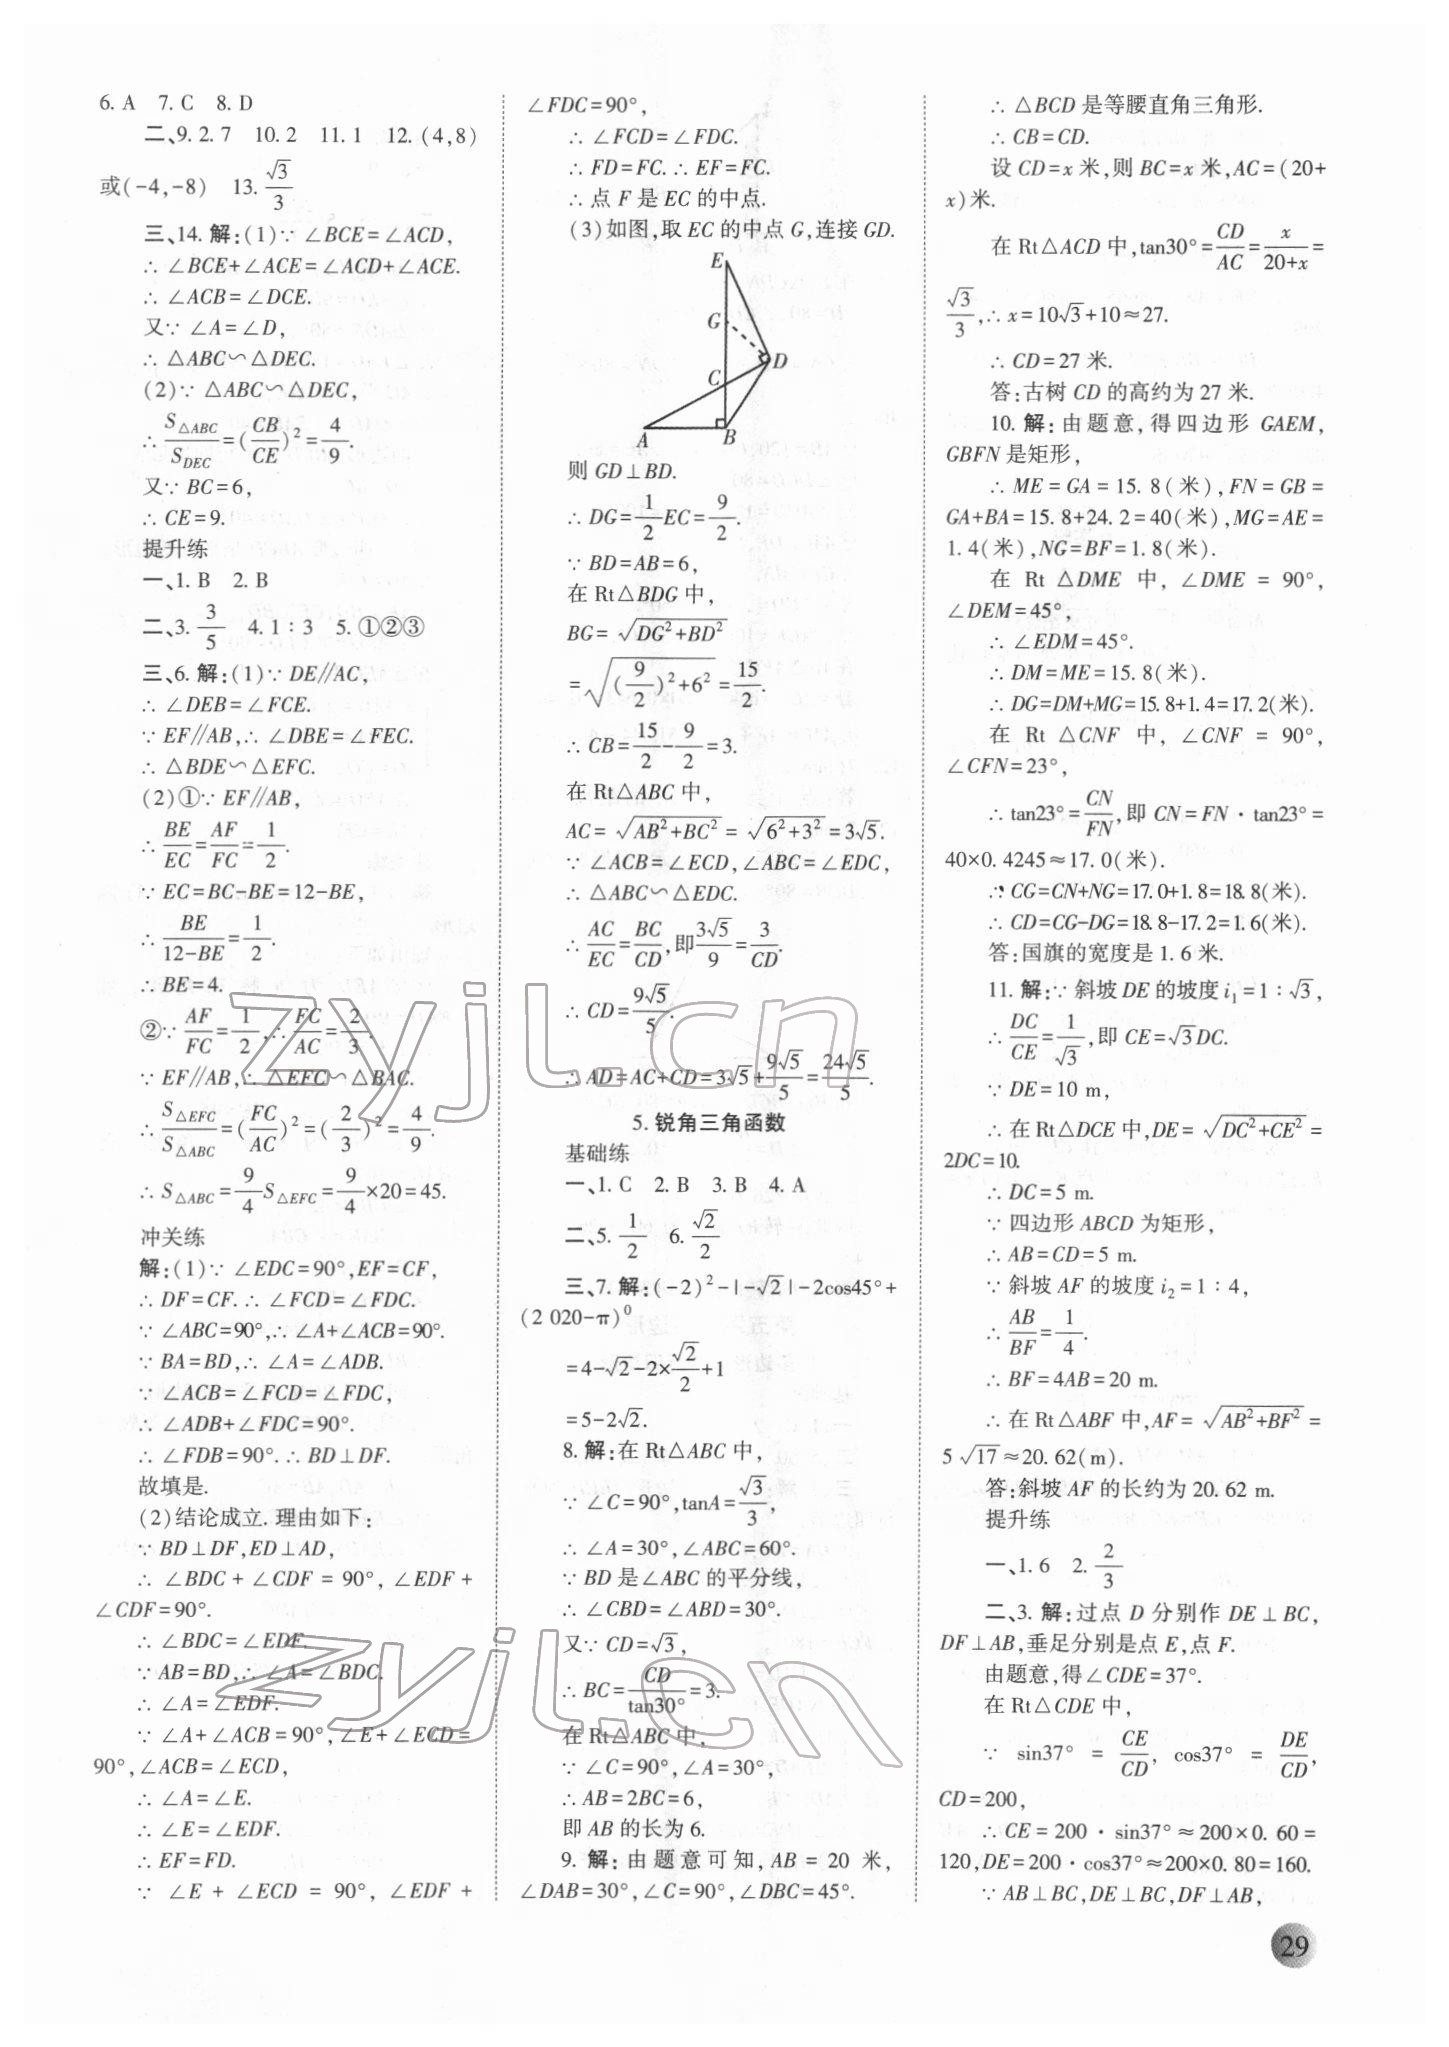 6. A 7. C 8. D
二、9. 2. 7 10. 2 11. 1 12. (4,8)
或(-4,-8) 13. √3/3
三、14. 解:(1)∵ ∠BCE=∠ACD,
∴ ∠BCE+∠ACE=∠ACD+∠ACE.
∴ ∠ACB=∠DCE.
又∵ ∠A=∠D,
∴ △ABC∽△DEC.
(2)∵ △ABC∽△DEC,
∴ S△ABC/S DEC=(CB/CE)²=4/9.
又∵ BC=6,
∴ CE=9.
提升练
一、1. B 2. B
二、3. 3/5 4. 1∶3 5. ①②③
三、6. 解:(1)∵ DE∥AC,
∴ ∠DEB=∠FCE.
∵ EF∥AB,∴ ∠DBE=∠FEC.
∴ △BDE∽△EFC.
(2)①∵ EF∥AB,
∴ BE/EC=AF/FC=1/2.
∵ EC=BC-BE=12-BE,
∴ BE/(12-BE)=1/2.
∴ BE=4.
②∵ AF/FC=1/2,∴ FC/AC=2/3.
∵ EF∥AB,∴ △EFC∽△BAC.
∴ S△EFC/S△ABC=(FC/AC)²=(2/3)²=4/9.
∴ S△ABC=9/4 S△EFC=9/4×20=45.
冲关练
解:(1)∵ ∠EDC=90°,EF=CF,
∴ DF=CF. ∴ ∠FCD=∠FDC.
∵ ∠ABC=90°,∴ ∠A+∠ACB=90°.
∵ BA=BD,∴ ∠A=∠ADB.
∵ ∠ACB=∠FCD=∠FDC,
∴ ∠ADB+∠FDC=90°.
∴ ∠FDB=90°. ∴ BD⊥DF.
故填是.
(2)结论成立. 理由如下:
∵ BD⊥DF,ED⊥AD,
∴ ∠BDC + ∠CDF = 90°, ∠EDF +
∠CDF=90°.
∴ ∠BDC=∠EDF.
∵ AB=BD,∴ ∠A=∠BDC.
∴ ∠A=∠EDF.
∵ ∠A+∠ACB=90°,∠E+∠ECD=
90°,∠ACB=∠ECD,
∴ ∠A=∠E.
∴ ∠E=∠EDF.
∴ EF=FD.
∵ ∠E + ∠ECD = 90°, ∠EDF +
∠FDC=90°,
∴ ∠FCD=∠FDC.
∴ FD=FC. ∴ EF=FC.
∴ 点 F 是 EC 的中点.
(3)如图,取 EC 的中点 G,连接 GD.
E
G
D
C
A
B
则 GD⊥BD.
∴ DG=1/2 EC=9/2.
∵ BD=AB=6,
在 Rt△BDG 中,
BG=√(DG²+BD²)
=√((9/2)²+6²)=15/2.
∴ CB=15/2-9/2=3.
在 Rt△ABC 中,
AC=√(AB²+BC²)=√(6²+3²)=3√5.
∵ ∠ACB=∠ECD,∠ABC=∠EDC,
∴ △ABC∽△EDC.
∴ AC/EC=BC/CD,即3√5/9=3/CD.
∴ CD=9√5/5.
∴ AD=AC+CD=3√5+9√5/5=24√5/5.
5. 锐角三角函数
基础练
一、1. C 2. B 3. B 4. A
二、5. 1/2 6. √2/2
三、7. 解:(-2)²-|-√2|-2cos45°+
(2 020-π)⁰
=4-√2-2×√2/2+1
=5-2√2.
8. 解:在 Rt△ABC 中,
∵ ∠C=90°,tanA=√3/3,
∴ ∠A=30°,∠ABC=60°.
∵ BD 是∠ABC 的平分线,
∴ ∠CBD=∠ABD=30°.
又∵ CD=√3,
∴ BC=CD/tan30°=3.
在 Rt△ABC 中,
∵ ∠C=90°,∠A=30°,
∴ AB=2BC=6,
即 AB 的长为 6.
9. 解: 由题意可知, AB = 20 米,
∠DAB=30°,∠C=90°,∠DBC=45°.
∴ △BCD 是等腰直角三角形.
∴ CB=CD.
设 CD=x 米,则 BC=x 米,AC=(20+
x)米.
在 Rt△ACD 中,tan30°=CD/AC=x/(20+x)=
√3/3,∴ x=10√3+10≈27.
∴ CD=27 米.
答:古树 CD 的高约为 27 米.
10. 解: 由题意, 得四边形 GAEM,
GBFN 是矩形,
∴ ME = GA = 15. 8(米),FN = GB =
GA+BA=15. 8+24. 2=40(米),MG=AE=
1. 4(米),NG=BF=1. 8(米).
在 Rt △DME 中, ∠DME = 90°,
∠DEM=45°,
∴ ∠EDM=45°.
∴ DM=ME=15. 8(米).
∴ DG=DM+MG=15. 8+1. 4=17. 2(米).
在 Rt △CNF 中, ∠CNF = 90°,
∠CFN=23°,
∴ tan23°=CN/FN,即 CN=FN·tan23°=
40×0. 4245≈17. 0(米).
∴ CG=CN+NG=17. 0+1. 8=18. 8(米).
∴ CD=CG-DG=18. 8-17. 2=1. 6(米).
答:国旗的宽度是 1. 6 米.
11. 解:∵ 斜坡 DE 的坡度 i₁=1∶√3,
∴ DC/CE=1/√3,即 CE=√3DC.
∵ DE=10 m,
∴ 在 Rt△DCE 中,DE=√(DC²+CE²)=
2DC=10.
∴ DC=5 m.
∵ 四边形 ABCD 为矩形,
∴ AB=CD=5 m.
∵ 斜坡 AF 的坡度 i₂=1∶4,
∴ AB/BF=1/4.
∴ BF=4AB=20 m.
∴ 在 Rt△ABF 中,AF=√(AB²+BF²)=
5√17≈20. 62(m).
答:斜坡 AF 的长约为 20. 62 m.
提升练
一、1. 6 2. 2/3
二、3. 解:过点 D 分别作 DE⊥BC,
DF⊥AB,垂足分别是点 E,点 F.
由题意,得∠CDE=37°.
在 Rt△CDE 中,
∵ sin37° = CE/CD, cos37° = DE/CD,
CD=200,
∴ CE = 200·sin37°≈200×0. 60 =
120,DE=200·cos37°≈200×0. 80=160.
∵ AB⊥BC,DE⊥BC,DF⊥AB,
29
zyjl.cn
zyjl.cn